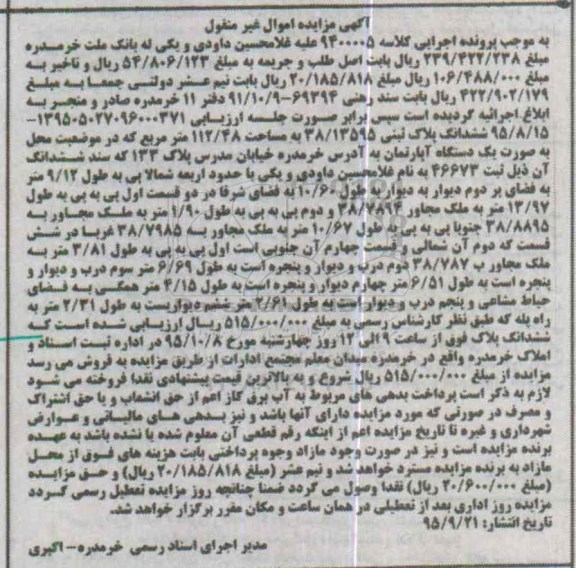 آگهی مزایده اموال غیر منقول
به موجب پرونده اجرایی کلاسه ۹۴۰۰۰۰۵ علیه غلامحسین داودی و یکی له بانک ملت خرمدره
مبلغ ۲۳۹/۴۲۲/۲۳۸ ریال بابت اصل طلب و جریمه به مبلغ ۵۴/۸۰۶/۱۲۳ ریال و تاخیر به
مبلغ ۱۰۶/۴۸۸/۰۰۰ ریال مبلغ ۲۰/۱۸۵/۸۱۸ ریال بابت نیم عشر دولتی جمعا به مبلغ
۴۲۲/۹۰۲/۱۷۹ ریال بابت سند رهنی ۶۹۳۹۴-۹۱/۱۰/۹ دفتر ۱۱ خرمدره صادر و منجر به
ابلاغ اجرائیه گردیده است سپس برابر صورت جلسه ارزیابی ۱۳۹۵۰۵۰۲۷۰۹۶۰۰۰۳۷۱-
۹۵/۸/۱۵ ششدانگ پلاک ثبتی ۳۸/۱۳۵۹۵ به مساحت ۱۱۲/۴۸ متر مربع که در موضعیت محل
به صورت یک دستگاه آپارتمان به آدرس خرمدره خیابان مدرس پلاک ۱۳۳ که سند ششدانگ
آن ذیل ثبت ۴۶۶۷۳ به نام غلامحسین داودی و یکی با حدود اربعه شمالا پی به طول ۹/۱۲ متر
به فضای بر دوم دیوار به دیوار به طول ۱۰/۶۰ به فضای شرقا در دو قسمت اول پی به پی به طول
۱۳/۹۷ متر به ملک مجاور ۳۸/۷۸۹۴ و دوم پی به پی به طول ۱/۹۰ متر به ملک مجاور به
۳۸/۸۸۹۵ جنوبا پی به پی به طول ۱۰/۶۷ متر به ملک مجاور به ۳۸/۷۹۸۵ غربا در شش
قسمت که دوم آن شمالی و قسمت چهارم آن جنوبی است اول پی به پی به طول ۳/۸۱ متر به
ملک مجاور ب ۳۸/۷۸۷ دوم درب و دیوار و پنجره است به طول ۶/۶۹ متر سوم درب و دیوار و
پنجره است به طول ۶/۵۱ متر چهارم دیوار و پنجره است به طول ۴/۱۵ متر همگی به فضای
حیاط مشاعی و پنجم درب و دیوار است به طول ۲/۶۱ متر ششم دیواریست به طول ۲/۳۱ متر به
راه پله که طبق نظر کارشناس رسمی به مبلغ ۵۱۵/۰۰۰/۰۰۰ ریال ارزیابی شده است که
ششدانگ پلاک فوق از ساعت ۹ الی ۱۲ روز چهارشنبه مورخ ۹۵/۱۰/۸ در اداره ثبت اسناد و
املاک خرمدره واقع در خرمدره میدان معلم مجتمع ادارات از طریق مزایده به فروش می رسد
مزایده از مبلغ ۵۱۵/۰۰۰/۰۰۰ ریال شروع و به بالاترین قیمت پیشنهادی نقدا فروخته می شود
لازم به ذکر است پرداخت بدهی های مربوط به آب برق گاز اعم از حق انشعاب و یا حق اشتراک
و مصرف در صورتی که مورد مزایده دارای آنها باشد و نیز بدهی های مالیاتی و عوارض
شهرداری و غیره تا تاریخ مزایده اعم از اینکه رقم قطعی آن معلوم شده یا نشده باشد به عهده
برنده مزایده است و نیز در صورت وجود مازاد وجوه پرداختی بابت هزینه های فوق از محل
مازاد به برنده مزایده مسترد خواهد شد و نیم عشر (مبلغ ۲۰/۱۸۵/۸۱۸ ریال) و حق مزایده
(مبلغ ۲۰/۶۰۰/۰۰۰ ریال) نقدا وصول می گردد ضمنا چنانچه روز مزایده تعطیل رسمی گردد
مزایده روز اداری بعد از تعطیلی در همان ساعت و مکان مقرر برگزار خواهد شد.
تاریخ انتشار: ۹۵/۹/۲۱
مدیر اجرای اسناد رسمی خرمدره – اکبری